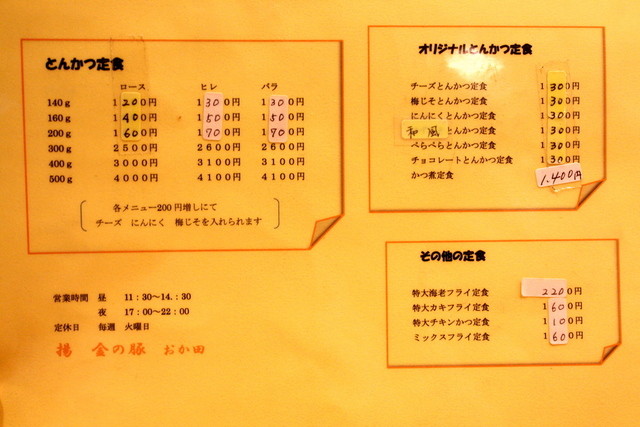 とんかつ定食
ロース ヒレ バラ
140g 1200円 1300円 1300円
160g 1400円 1500円 1500円
200g 1600円 1700円 1700円
300g 2500円 2600円 2600円
400g 3000円 3100円 3100円
500g 4000円 4100円 4100円
各メニュー200円増しにて
チーズ にんにく 梅じそを入れられます
営業時間 昼 11:30〜14.:30
夜 17:00〜22:00
定休日 毎週 火曜日
揚 金の豚 おか田
オリジナルとんかつ定食
チーズとんかつ定食 1300円
梅じそとんかつ定食 1300円
にんにくとんかつ定食 1300円
和風とんかつ定食 1300円
ぺらぺらとんかつ定食 1300円
チョコレートとんかつ定食 1300円
かつ煮定食 1.400円
その他の定食
特大海老フライ定食 2200円
特大カキフライ定食 1600円
特大チキンかつ定食 1100円
ミックスフライ定食 1600円